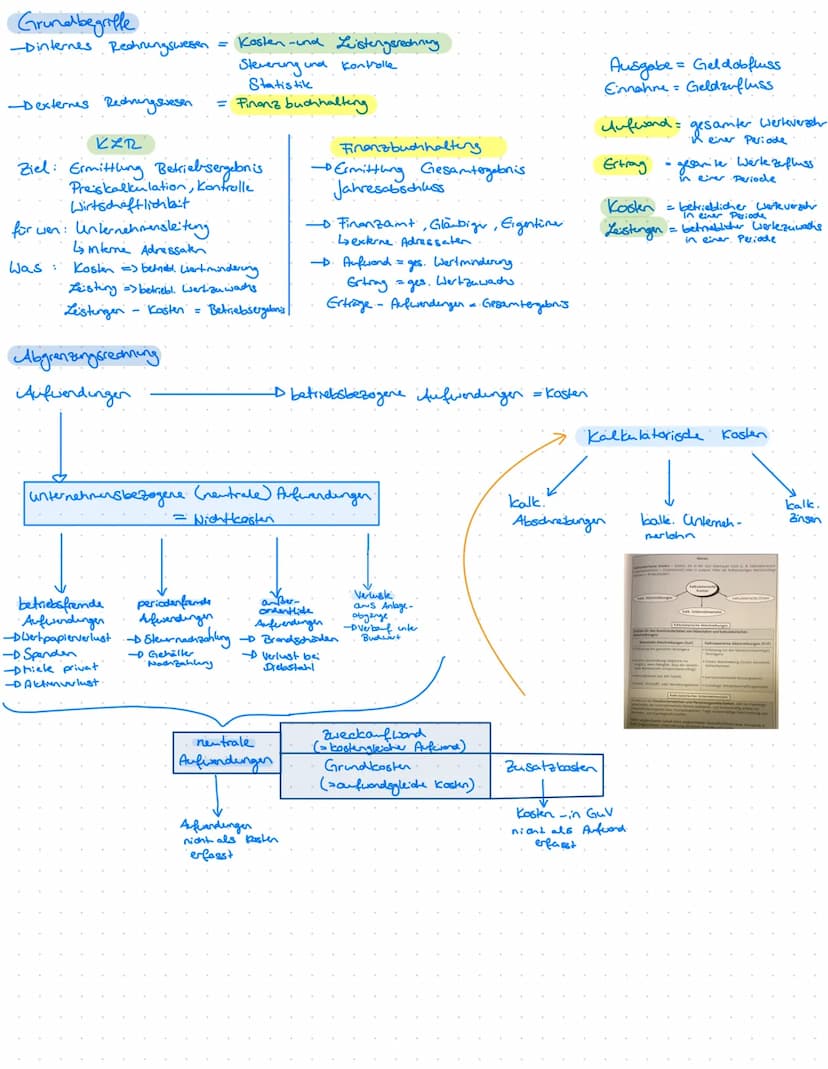 Grundbegriffe
→ internes Rechnungswesen = Kosten-und Leistungsrechnung
Steuerung und Kontrolle
Statistik
→ externes Rechnungswesen = Finanzbuchhaltung
Ausgabe = Geldabfluss
Einnahme = Geldzufluss
Aufwand = gesamter Werteverzehr
in einer Periode
Ertrag = gesamter Wertezufluss
in einer Periode
Kosten = betrieblicher Werteverzehr
in einer Periode
Leistungen = betrieblicher Wertezuwachs
in einer Periode
KLR
Ziel: Ermittlung Betriebsergebnis
Preiskalkulation, Kontrolle
Wirtschaftlichkeit
für wen: Unternehmensleitung
↳ interne Adressaten
Was: Kosten => betriebl. Wertminderung
Leistung => betriebl. Wertzuwachs
Leistungen - Kosten = Betriebsergebnis
Finanzbuchhaltung
→ Ermittlung Gesamtergebnis
Jahresabschluss
→ Finanzamt, Gläubiger, Eigentümer
↳ externe Adressaten
→ Aufwand = ges. Wertminderung
Ertrag = ges. Wertzuwachs
Erträge - Aufwendungen = Gesamtergebnis
Abgrenzungsrechnung
Aufwendungen → betriebsbezogene Aufwendungen = Kosten
unternehmensbezogene (neutrale) Aufwendungen
= Nichtkosten
betriebsfremde
Aufwendungen
→ Wertpapierverlust
→ Spenden
→ Miete privat
→ Aktienverlust
periodenfremde
Aufwendungen
→ Steuernachzahlung
→ Gehälter
Nachzahlung
außer-
ordentliche
Aufwendungen
→ Brandschäden
→ Verlust bei
Diebstahl
Verluste
aus Anlage-
abgänge
→ Verkauf unter
Buchwert
Kalkulatorische Kosten
kalk.
Abschreibungen
kalk. Unterneh-
merlohn
kalk.
Zinsen
neutrale
Aufwendungen
Zweckaufwand
(= kostengleicher Aufwand)
Grundkosten
(= aufwandsgleiche Kosten)
Zusatzkosten
Aufwendungen
nicht als Kosten
erfasst
Kosten - in GuV
nicht als Aufwand
erfasst